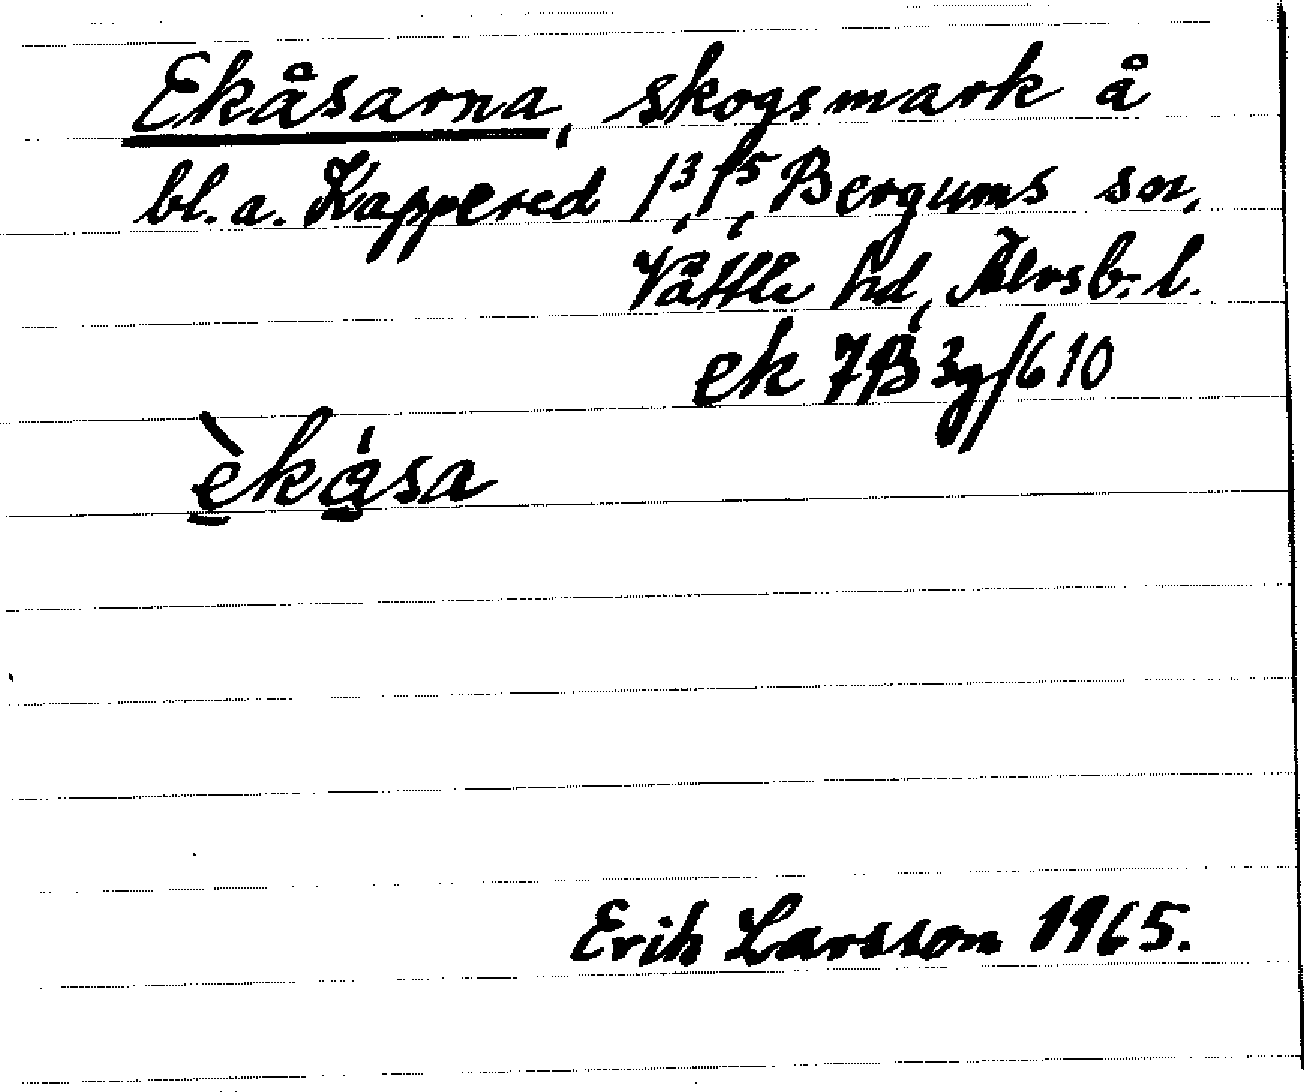 Ekåsarna, skogsmark å
bl. a. Kappered 1³, 1⁵, Bergums sn,
Vättle hd, Älvsb. l.
ek 7B 3g/610
èkåsa
Erik Larsson 1965.